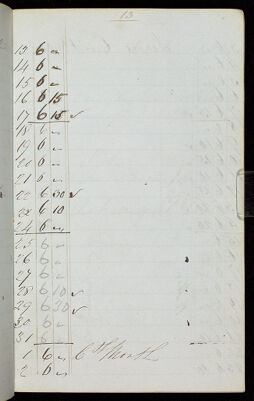 13
13 6 "
14 6 "
15 6 "
16 6 15
17 6 15 ✓
18 6 "
19 6 "
20 6 "
21 6 "
22 6 30 ✓
23 6 10
24 6 "
25 6 "
26 6 "
27 6 "
28 6 10 ✓
29 6 30 ✓
30 6 "
31 6
1 6 " 6th Month
2 6 "